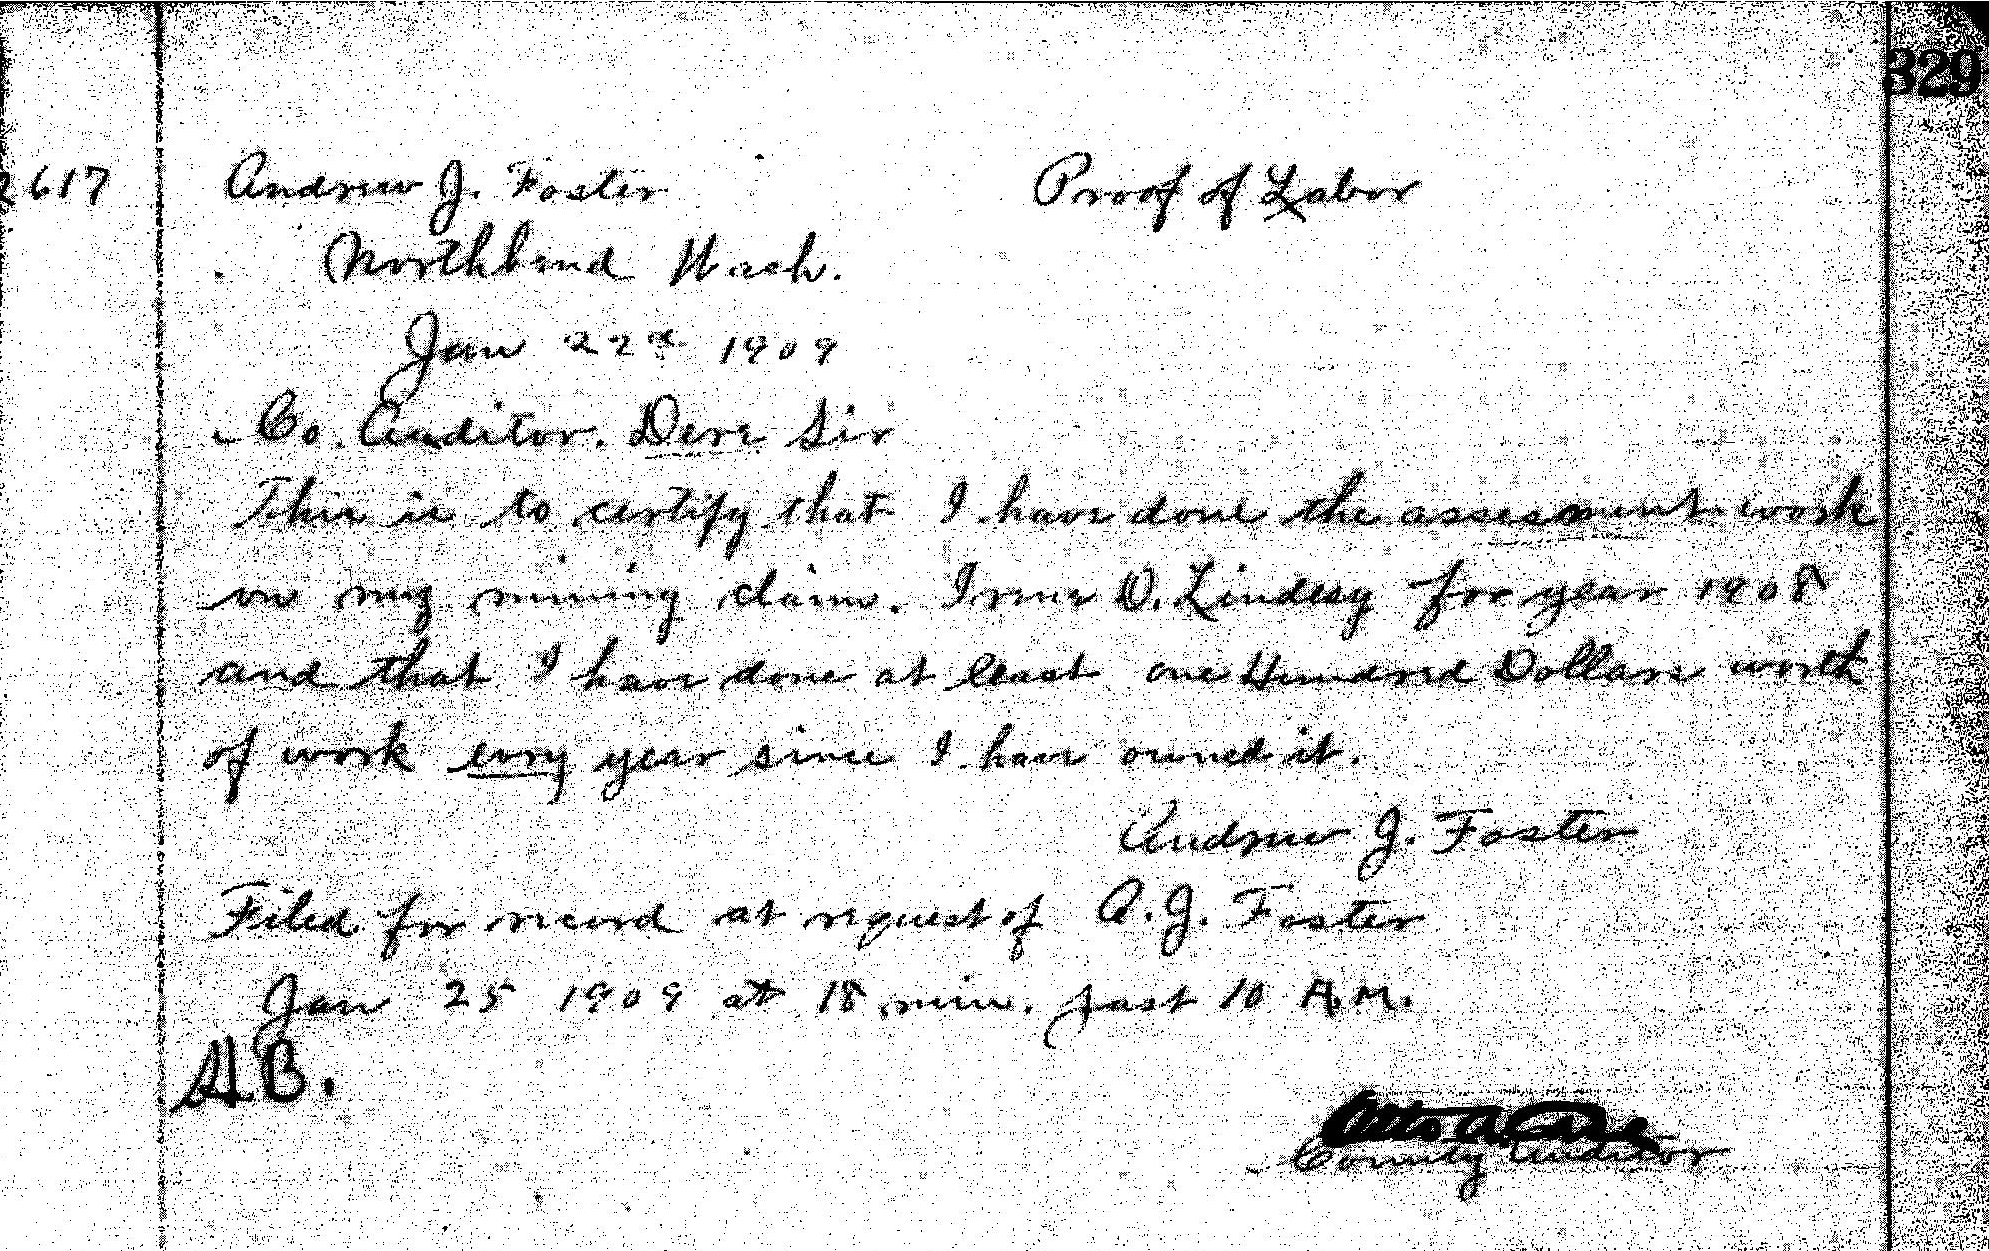 329
2617 Andrew J. Foster Proof of Labor
Northbend Wash.
Jan 22d 1909
Co. Auditor. Dere Sir
This is to certify that I have done the assesment work
on my mining claim. Irene D. Lindesy for year 1908
and that I have done at least one Hundred Dollars worth
of work evry year since I have owned it.
Andrew J. Foster
Filed for record at request of A. J. Foster
Jan 25 1909 at 18 min. past 10 A.M.
A.B.
Otto A. Case
County Auditor